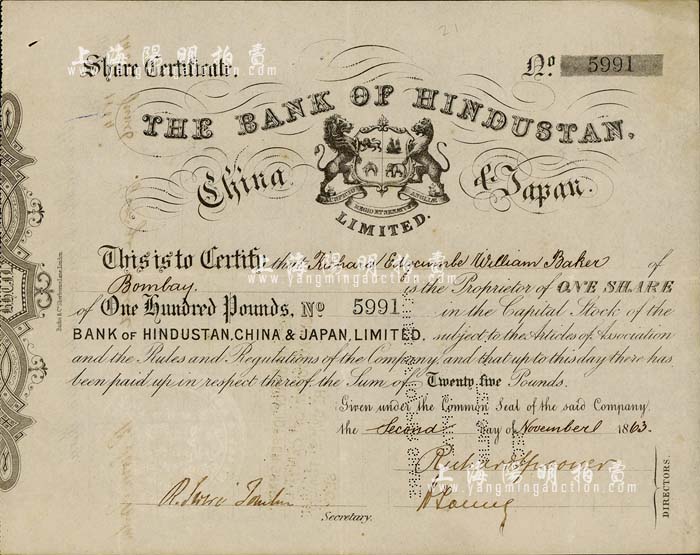 上海陽明拍賣
www.yangmingauction.com
上海陽明拍賣
21
Share Certificate.
No 5991
THE BANK OF HINDUSTAN,
China & Japan.
LIMITED.
This is to Certify that Richard Edgcumbe William Baker of
Bombay. is the Proprietor of ONE SHARE
of One Hundred Pounds, No 5991 in the Capital Stock of the
BANK OF HINDUSTAN, CHINA & JAPAN, LIMITED, subject to the Articles of Association
and the Rules and Regulations of the Company, and that up to this day there has
been paid up in respect thereof the Sum of Twenty five Pounds.
Given under the Common Seal of the said Company
the Second day of November 1863.
Secretary.
DIRECTORS.
上海陽明拍賣
www.yangmingauction.com
上海陽明拍賣
www.yangmingauction.com